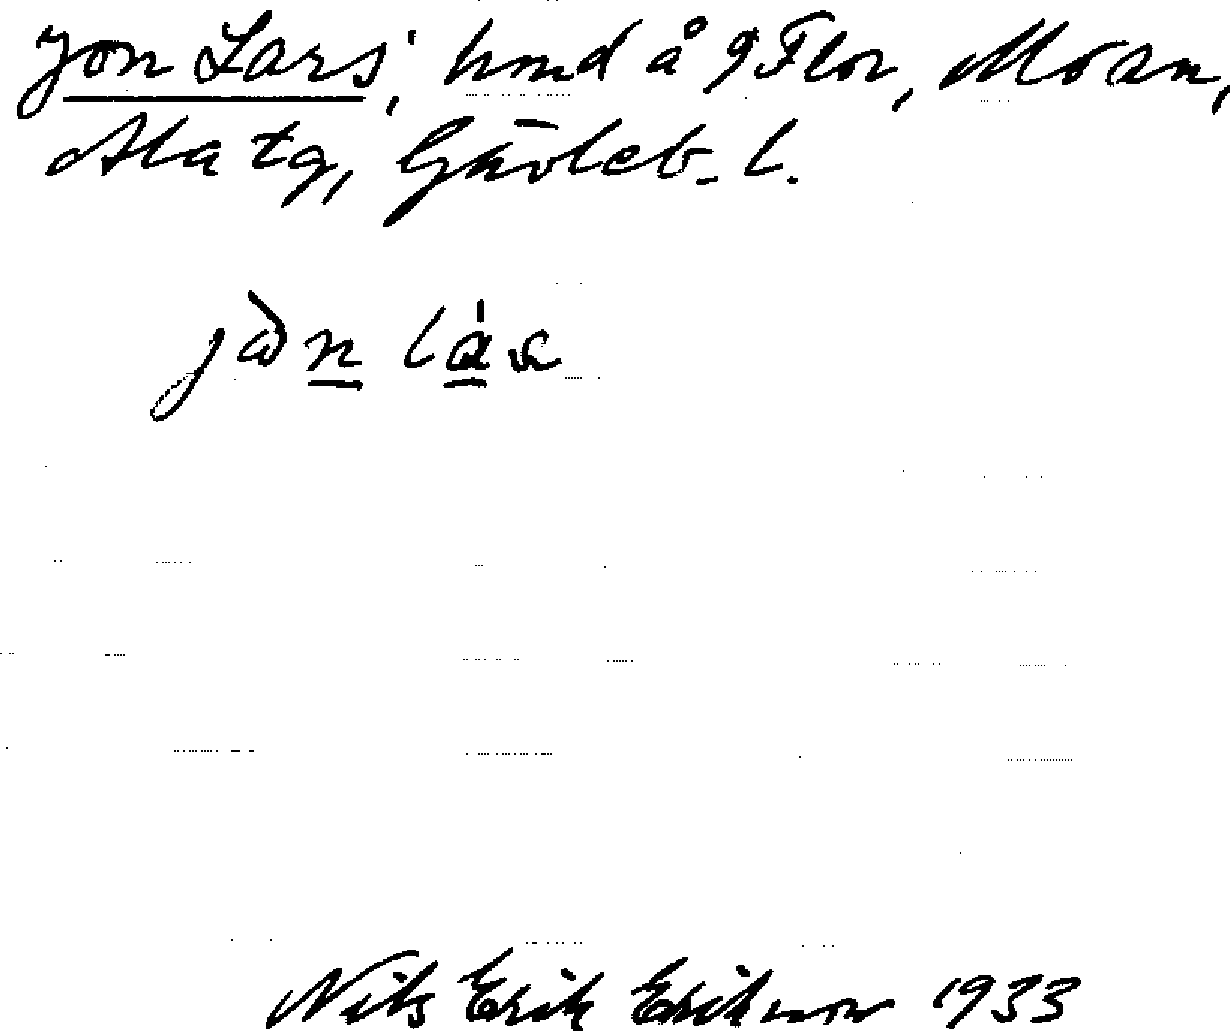 Jon Lars; hmd å 9 Flor, Moan,
Ala tg, Gävleb. l.
Nils Erik Eriksson 1933